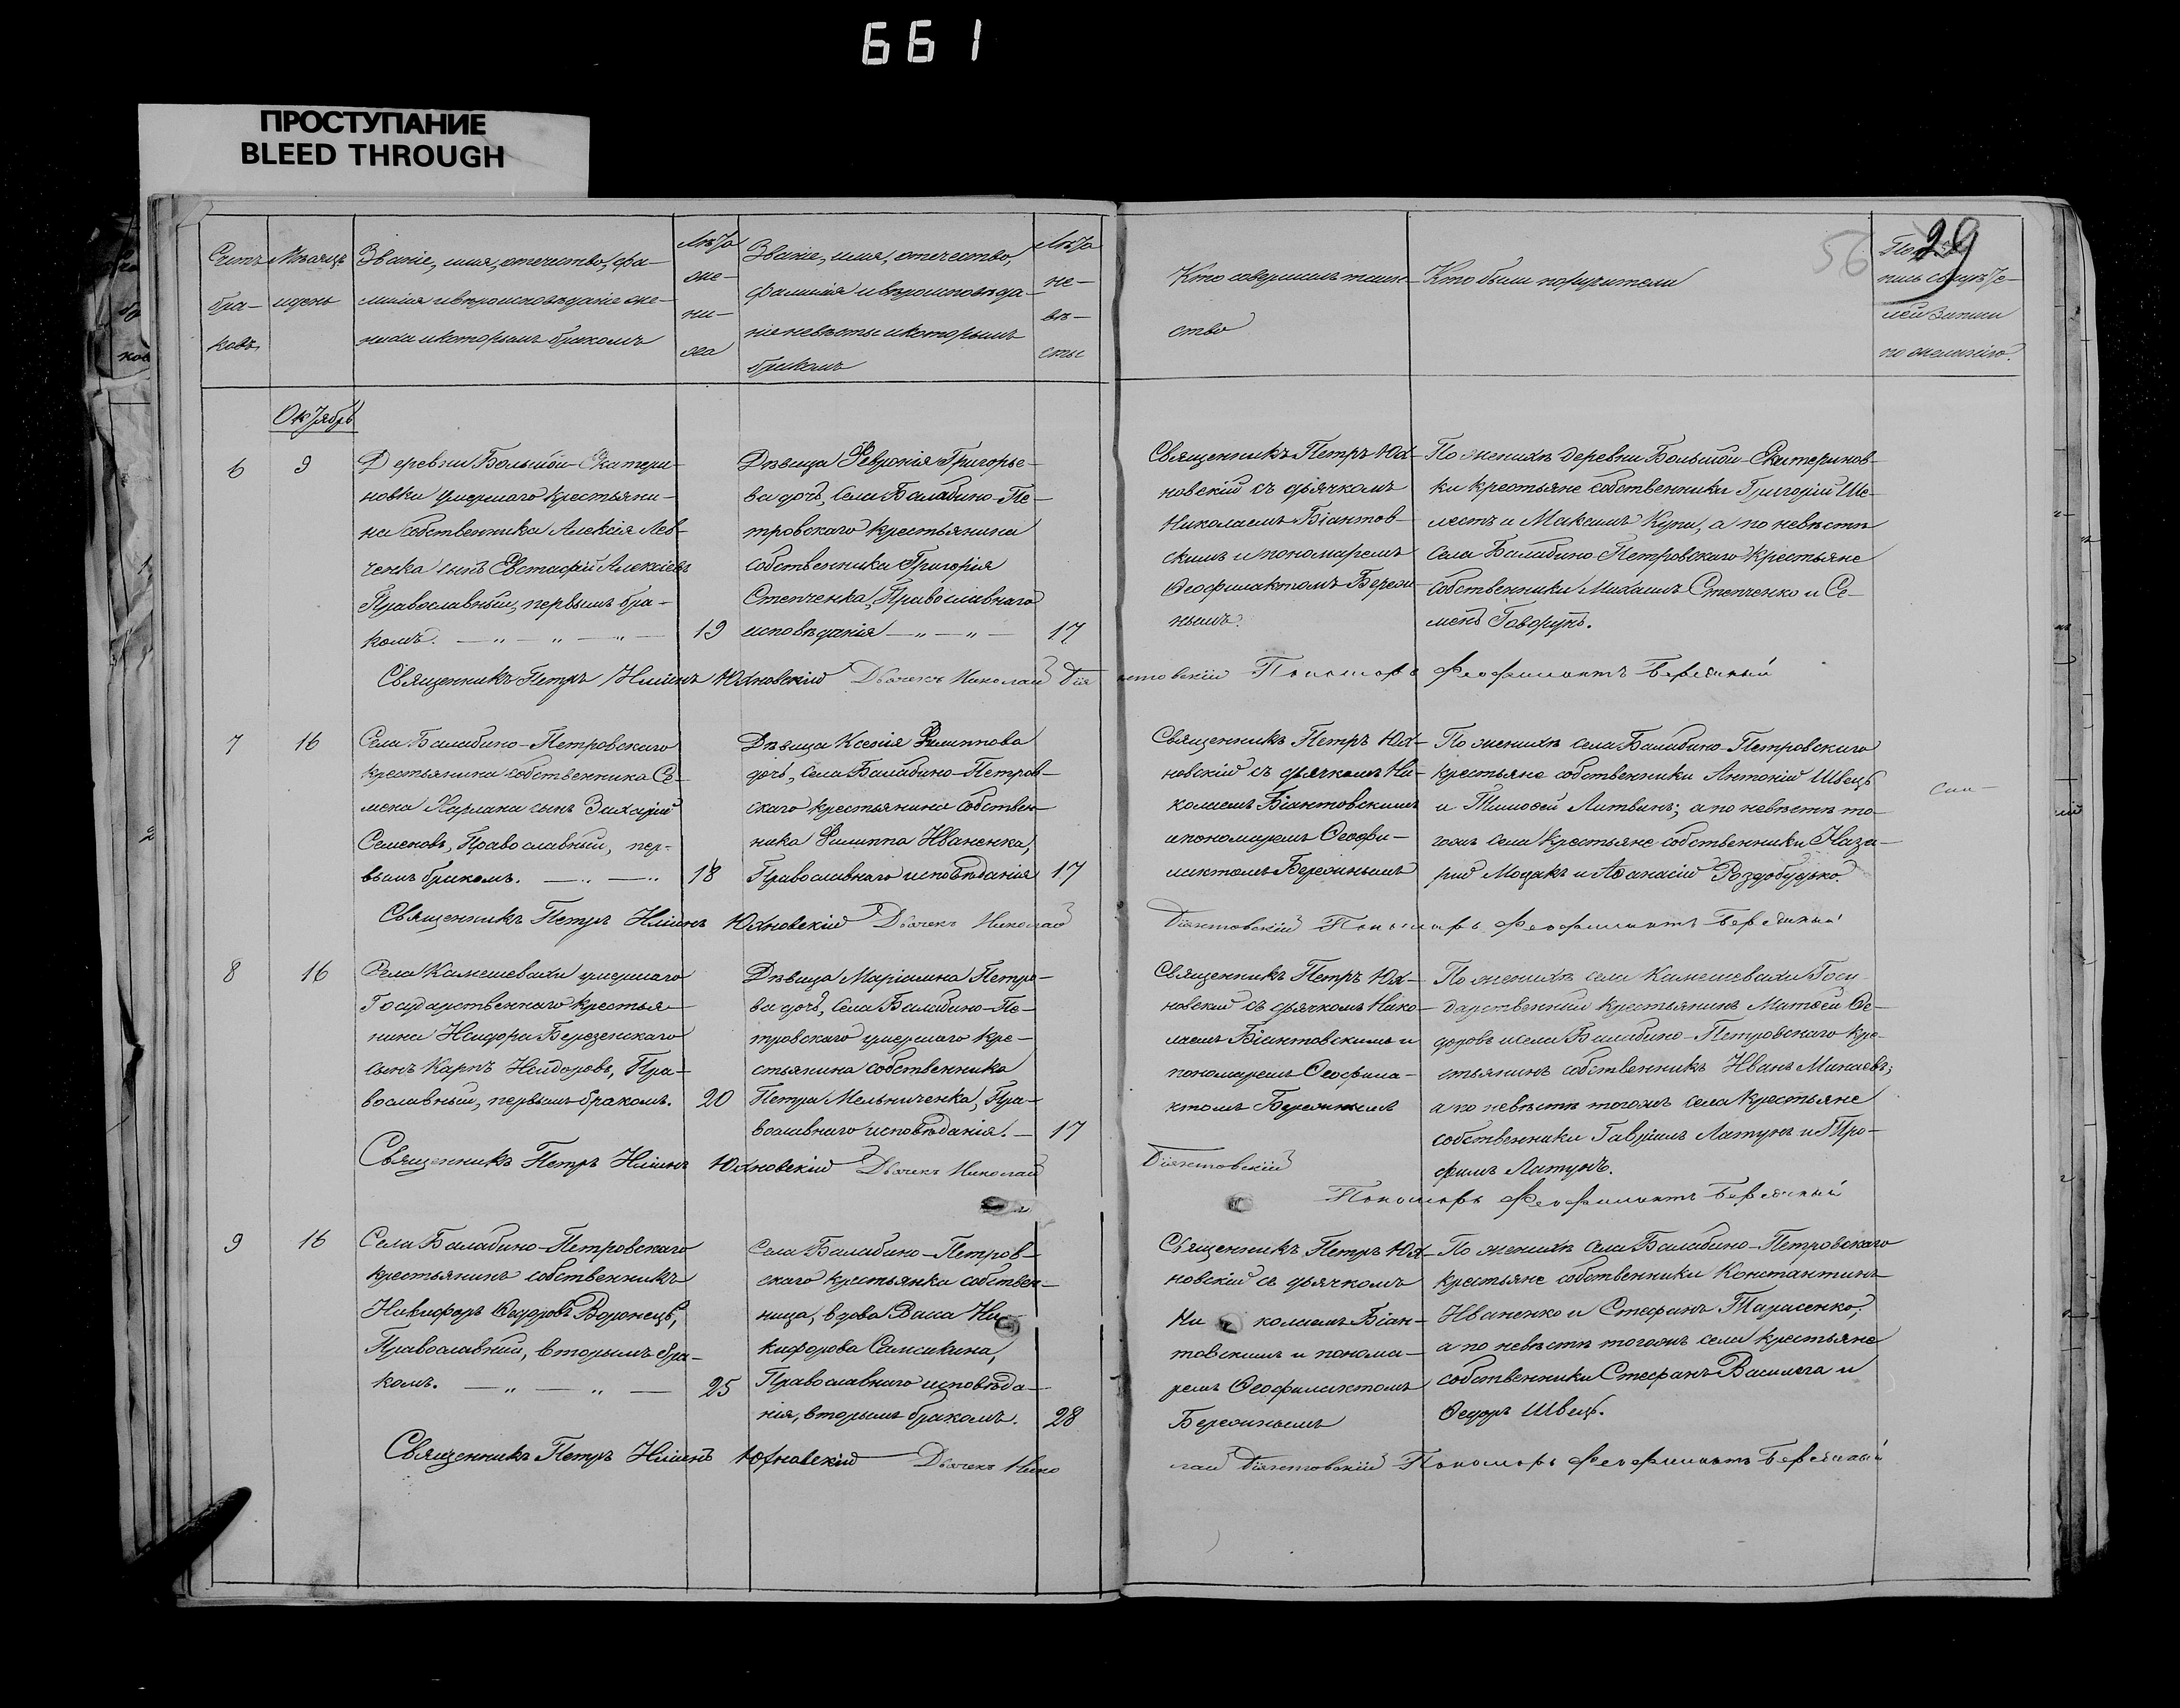 661
ПРОСТУПАНИЕ
BLEED THROUGH
56
29
Счетъ
бра-
ковъ.
Мѣсяцъ
и день
Званіе, имя, отчество, фа-
милія и вѣроисповѣданіе же-
ниха и которымъ бракомъ
Лѣта
же-
ни-
ха
Званіе, имя, отчество,
фамилія и вѣроисповѣда-
ніе невѣсты и которымъ
бракомъ
Лѣта
не-
вѣ-
сты
Кто совершилъ таин-
ство
Кто были поручители
пись свидѣте-
лей записи
по желанію.
Октябрь
6
9
Деревни Большой-Екатери-
новки умершаго крестьяни-
на собственника Алексія Лев-
ченка сынъ Евстафій Алексіевъ
Православный, первымъ бра-
комъ. — „ — „ — „ —
19
Дѣвица Февронія Григорье-
ва дочь, Села Балабино-Пе-
тровскаго крестьянина
собственника Григорія
Степченка, Православнаго
исповѣданія — „ — „ —
17
Священникъ Петръ Юх-
новскій съ дьячкомъ
Николаемъ Біантов-
скимъ и пономаремъ
Ѳеофилактомъ Бережи-
нымъ.
По женихѣ деревни Большой-Екатеринов-
ки крестьяне собственники Григорій Ше-
лестъ и Максимъ Купа, а по невѣстѣ
Села Балабино-Петровскаго крестьяне
собственники Михаилъ Степченко и Се-
менъ Говорунъ.
Священникъ Петръ Иліинъ Юхновскій Дьячекъ Николай Біянтовскій Пономарь Феофилактъ Бережный
7
16
Села Балабино-Петровскаго
крестьянина собственника Се-
мена Карлана сынъ Захарій
Семеновъ, Православный, пер-
вымъ бракомъ. — „ — „
18
Дѣвица Ксенія Филиппова
дочь, Села Балабино-Петров-
скаго крестьянина собствен-
ника Филиппа Иваненка,
Православнаго исповѣданія
17
Священникъ Петръ Юх-
новскій съ дьячкомъ Ни-
колаемъ Біантовскимъ
и пономаремъ Ѳеофи-
лактомъ Бережнымъ
По женихѣ села Балабино-Петровскаго
крестьяне собственники Антоній Швецъ
и Тимофей Литвинъ; а по невѣстѣ то-
гожъ села крестьяне собственники Наза-
рій Мозакъ и Аѳанасій Роздобудько.
Священникъ Петръ Иліинъ Юхновскій Дьячекъ Николай Біянтовскій Пономарь Феофилактъ Бережный
8
16
Села Камешевахи умершаго
Государственнаго крестья-
нина Исидора Березенскаго
сынъ Карпъ Исидоровъ, Пра-
вославный, первымъ бракомъ.
20
Дѣвица Маріамна Петро-
ва дочь, Села Балабино-Пе-
тровскаго умершаго кре-
стьянина собственника
Петра Мельниченка, Пра-
вославнаго исповѣданія. —
17
Священникъ Петръ Юх-
новскій съ дьячкомъ Нико-
лаемъ Біантовскимъ и
пономаремъ Ѳеофила-
ктомъ Бережнымъ
По женихѣ села Камешевахи Госу-
дарственный крестьянинъ Матѳей Ѳе-
доровъ и села Балабино-Петровскаго кре-
стьянинъ собственникъ Иванъ Минаевъ;
а по невѣстѣ тогожъ села крестьяне
собственники Гавріилъ Латунъ и Тро-
фимъ Латунъ.
Священникъ Петръ Иліинъ Юхновскій Дьячекъ Николай Біянтовскій
Пономарь Феофилактъ Бережный
9
16
Села Балабино-Петровскаго
крестьянинъ собственникъ
Никифоръ Ѳедоровъ Воронецъ,
Православный, вторымъ бра-
комъ. — „ — „ —
25
Села Балабино-Петров-
скаго крестьянка собствен-
ница, вдова Васса Ни-
кифорова Самсикина,
Православнаго исповѣда-
нія, вторымъ бракомъ.
28
Священникъ Петръ Юх-
новскій съ дьячкомъ
Николаемъ Біан-
товскимъ и понома-
ремъ Ѳеофилактомъ
Бережнымъ
По женихѣ Села Балабино-Петровскаго
крестьяне собственники Константинъ
Иваненко и Стефанъ Тарасенко,
а по невѣстѣ тогожъ села крестьяне
собственники Стефанъ Василега и
Ѳедоръ Швецъ.
Священникъ Петръ Иліинъ Юхновскій Дьячекъ Николай Біянтовскій Пономарь Феофилактъ Бережный